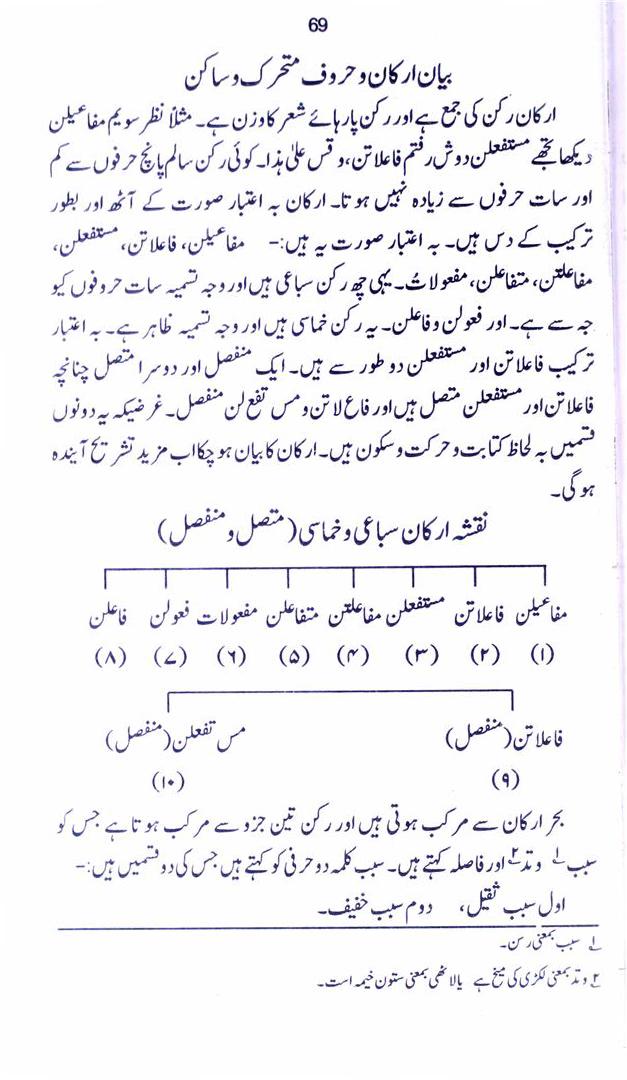 69
بیان ارکان و حروف متحرک و ساکن
ارکان رکن کی جمع ہے اور رکن پارہائے شعر کا وزن ہے۔ مثلاً نظر سویم مفاعیلن
دیکھا تجھے مستفعلن دوش رفتم فاعلاتن، و قس علیٰ ہذا۔ کوئی رکن سالم پانچ حرفوں سے کم
اور سات حرفوں سے زیادہ نہیں ہوتا۔ ارکان بہ اعتبار صورت کے آٹھ اور بطور
ترکیب کے دس ہیں۔ بہ اعتبار صورت یہ ہیں:- مفاعیلن، فاعلاتن، مستفعلن،
مفاعلتن، متفاعلن، مفعولاتُ۔ یہی چھ رکن سباعی ہیں اور وجہ تسمیہ سات حروفوں کیو
جہ سے ہے۔ اور فعولن و فاعلن۔ یہ رکن خماسی ہیں اور وجہ تسمیہ ظاہر ہے۔ بہ اعتبار
ترکیب فاعلاتن اور مستفعلن دو طور سے ہیں۔ ایک منفصل اور دوسرا متصل چنانچہ
فاعلاتن اور مستفعلن متصل ہیں اور فاع لاتن و مس تفع لن منفصل۔ غرضیکہ یہ دونوں
قسمیں بہ لحاظ کتابت و حرکت و سکون ہیں۔ ارکان کا بیان ہو چکا اب مزید تشریح آیندہ
ہو گی۔
نقشہ ارکان سباعی و خماسی (متصل و منفصل)
مفاعیلن فاعلاتن مستفعلن مفاعلتن متفاعلن مفعولات فعولن فاعلن
(۱) (۲) (۳) (۴) (۵) (۶) (۷) (۸)
فاعلاتن (منفصل) مس تفعلن (منفصل)
(۹) (۱۰)
بحر ارکان سے مرکب ہوتی ہیں اور رکن تین جزو سے مرکب ہوتا ہے جس کو
سبب۱ وتد۲ اور فاصلہ کہتے ہیں۔ سبب کلمہ دو حرفی کو کہتے ہیں جس کی دو قسمیں ہیں:-
اول سبب ثقیل، دوم سبب خفیف۔
۱ سبب بمعنی رسن۔
۲ وتد بمعنی لکڑی کی میخ ہے یا لاٹھی بمعنی ستون خیمہ است۔